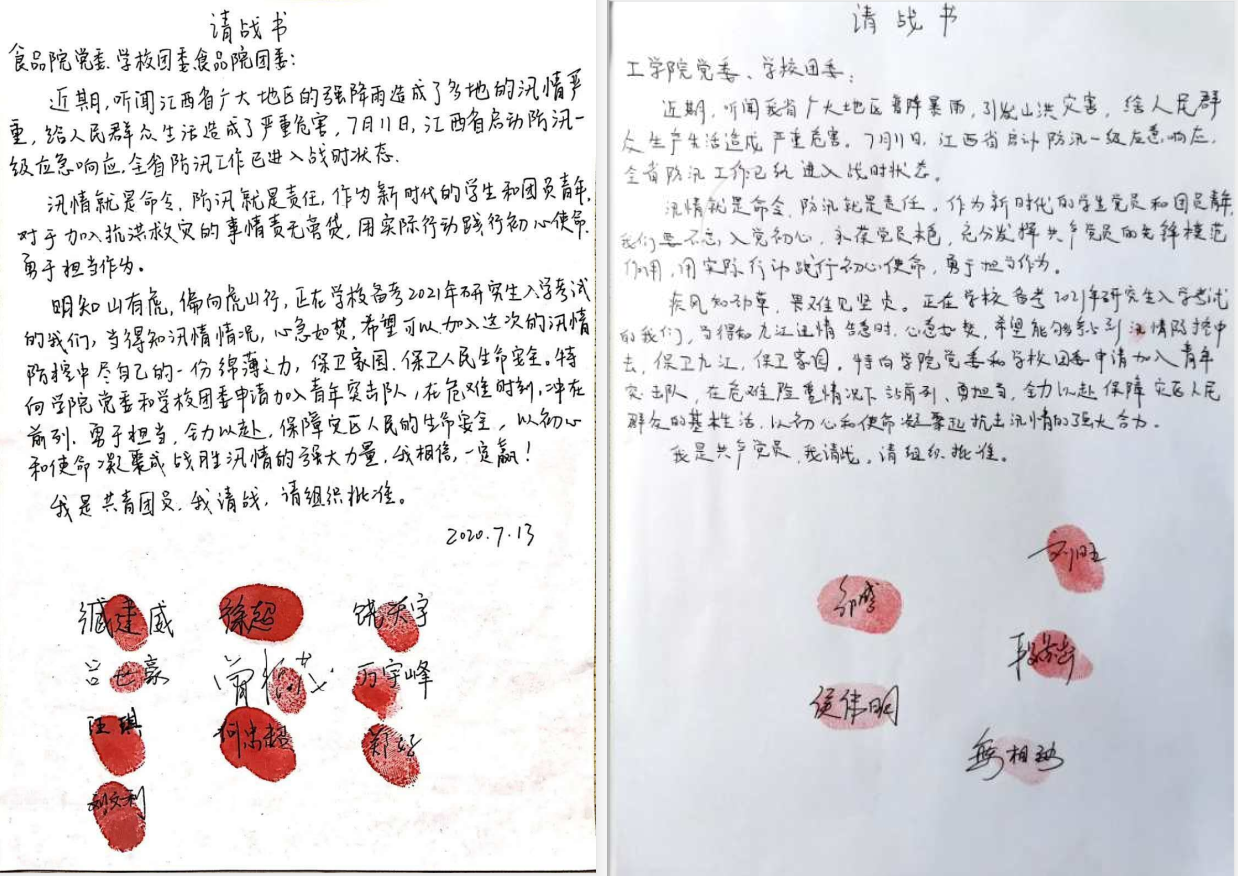 请战书
食品院党委、学校团委食品院团委:
近期,听闻江西省广大地区的强降雨造成了多地的汛情严
重,给人民群众生活造成了严重危害,7月11日,江西省启动防汛一
级应急响应,全省防汛工作已进入战时状态.
汛情就是命令,防汛就是责任,作为新时代的学生和团员青年,
对于加入抗洪救灾的事情责无旁贷,用实际行动践行初心使命,
勇于担当作为。
明知山有虎,偏向虎山行,正在学校备考2021年研究生入学考试
的我们,当得知汛情情况,心急如焚,希望可以加入这次的汛情
防控中尽自己的一份绵薄之力,保卫家园、保卫人民生命安全。特
向学院党委和学校团委申请加入青年突击队,在危难时刻,冲在
前列、勇于担当,全力以赴,保障灾区人民的生命安全,以初心
和使命凝聚成战胜汛情的强大力量,我相信,一定赢!
我是共青团员,我请战,请组织批准。
2020.7.13
臧建威 徐超 饶天宇
吕世豪 万宇峰
汪琪 何忠超 郑
刘文利
请战书
工学院党委、学校团委:
近期,听闻我省广大地区普降暴雨,引发山洪灾害,给人民群
众生产生活造成严重危害。7月11日,江西省启动防汛一级应急响应,
全省防汛工作已经进入战时状态。
汛情就是命令,防汛就是责任。作为新时代的学生党员和团员青年,
我们要不忘入党初心,永葆党员本色,充分发挥共产党员的先锋模范
作用,用实际行动践行初心使命,勇于担当作为。
疾风知劲草,患难见坚贞。正在学校备考2021年研究生入学考试
的我们,当得知九江汛情告急时,心急如焚,希望能够参与到汛情防控中
去,保卫九江,保卫家园。特向学院党委和学校团委申请加入青年
突击队,在危难险重情况下站前列、勇担当,全力以赴保障灾区人民
群众的基本生活,以初心和使命凝聚起抗击汛情的强大合力。
我是共产党员,我请战,请组织批准。
刘旺
邹
段
侯伟明
相